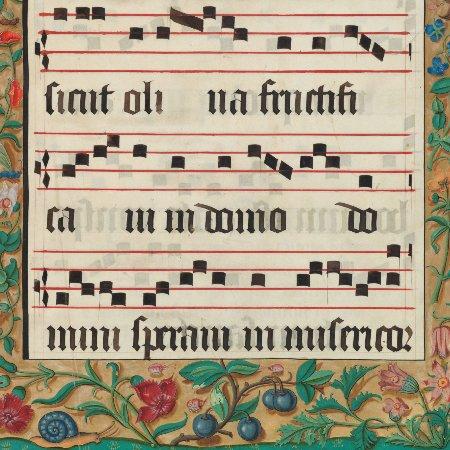 sicut oli ua fructifi
ca ui in domo do
mini speraui in misericor